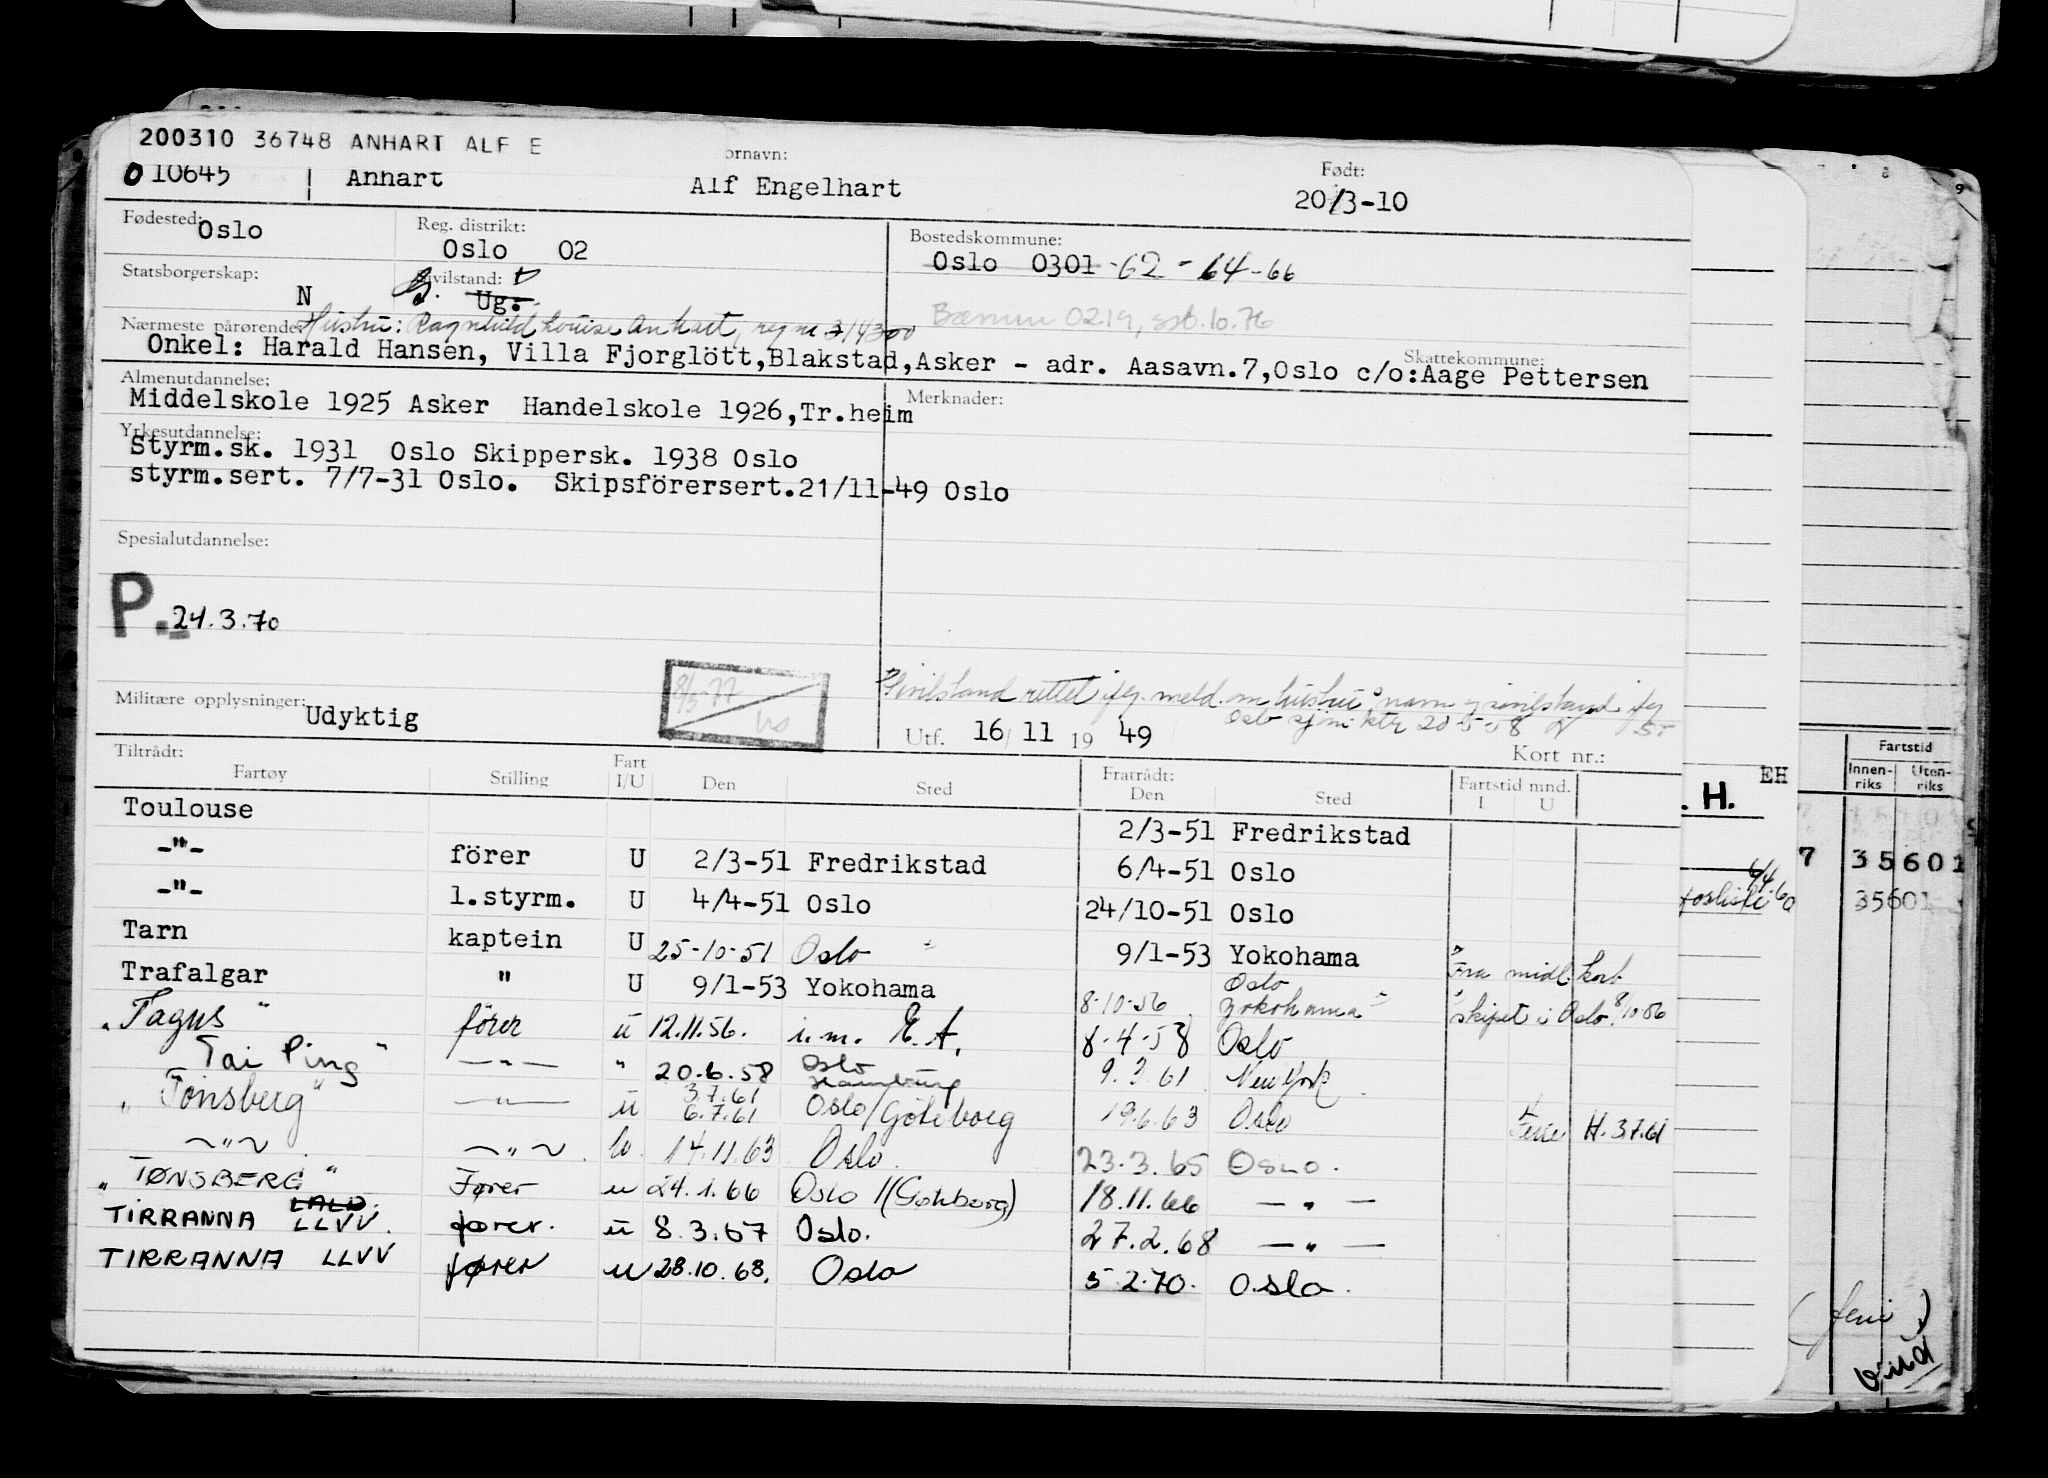 200310 36748 ANHART ALF E
ornavn: Født:
0 10645 Anhart Alf Engelhart 20/3-10
Fødested: Oslo Reg. distrikt: Oslo 02 Bostedskommune: Oslo 0301 -62 - 64-66
Statsborgerskap: N Sivilstand: G. Ug.
Bærum 0219, ssb.10.76
Nærmeste pårørende: Hustru: Ragnhild Louise Anhart, reg nr. 314300
Onkel: Harald Hansen, Villa Fjorglött,Blakstad,Asker - adr. Aasavn.7,Oslo c/o:Aage Pettersen
Skattekommune:
Almenutdannelse: Merknader:
Middelskole 1925 Asker Handelskole 1926,Tr.heim
Yrkesutdannelse:
Styrm.sk. 1931 Oslo Skippersk. 1938 Oslo
styrm.sert. 7/7-31 Oslo. Skipsförersert.21/11-49 Oslo
Spesialutdannelse:
P. 24.3.70
Sivilstand rettet ifg. meld. m hustru's navn og sivilstand ifg
Oslo sjøm.ktr 20-5-58
Militære opplysninger: Udyktig
8/3-77
Utf. 16 11 19 49
Kort nr.:
Tiltrådt: Fratrådt:
Fartøy Stilling Fart I/U Den Sted Den Sted Fartstid mnd. I U
Toulouse 2/3-51 Fredrikstad
-"- förer U 2/3-51 Fredrikstad 6/4-51 Oslo
-"- 1.styrm. U 4/4-51 Oslo 24/10-51 Oslo
Tarn kaptein U 25-10-51 Oslo 9/1-53 Yokohama Fra midl. kort
Trafalgar " U 9/1-53 Yokohama 8-10-56 Oslo Yokohama skipet i Oslo 8/10-56
"Tagus" fører u 12.11.56. i.m. E.A. 8-4-58 Oslo
Tai Ping" —"— " 20.6.58 Oslo 9.3.61 New York
Hamburg
"Tønsberg" —"— u 3.7.61 6.7.61 Oslo/Göteborg 19.6.63 Oslo Ferie H. 3.7.61
~"~ ~"~ 14.11.63 Oslo 23.3.65 OSLO.
"TØNSBERG" Fører u 24.1.66 Oslo (Gøteborg) 18.11.66 — " —
LALD
TIRRANNA LLVV. fører. u 8.3.67 Oslo. 27.2.68 — " —
TIRRANNA LLVV fører u 28.10.68. Oslo 5.2.70. Oslo.
EH
. H.
Fartstid
Innen-riks Uten-riks
7 35601
35601
6/4.60